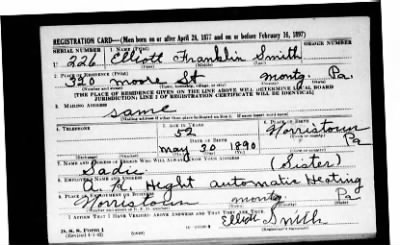 REGISTRATION CARD—(Men born on or after April 28, 1877 and on or before February 16, 1897)
SERIAL NUMBER 1. NAME (Print) ORDER NUMBER
U 226 Elliott Franklin Smith
2. PLACE OF RESIDENCE (Print)
320 Moore St Montg. Pa.
(Number and street) (Town, township, village, or city) (County) (State)
[THE PLACE OF RESIDENCE GIVEN ON THE LINE ABOVE WILL DETERMINE LOCAL BOARD
JURISDICTION; LINE 2 OF REGISTRATION CERTIFICATE WILL BE IDENTICAL]
3. MAILING ADDRESS
same
(Mailing address if other than place indicated on line 2. If same insert word same)
4. TELEPHONE 5. AGE IN YEARS 6. PLACE OF BIRTH
52 Norristown
DATE OF BIRTH
May 30 1890 Pa
(Exchange) (Number) (Mo.) (Day) (Yr.) (State or country)
7. NAME AND ADDRESS OF PERSON WHO WILL ALWAYS KNOW YOUR ADDRESS
Sadie (Sister)
8. EMPLOYER'S NAME AND ADDRESS
Hight Automatic Heating
9. PLACE OF EMPLOYMENT OR BUSINESS
Norristown Montg Pa
(County) (State)
I AFFIRM THAT I HAVE VERIFIED ABOVE ANSWERS AND THAT THEY ARE TRUE.
D. S. S. Form 1
(Revised 4-1-42)
Elliott Smith